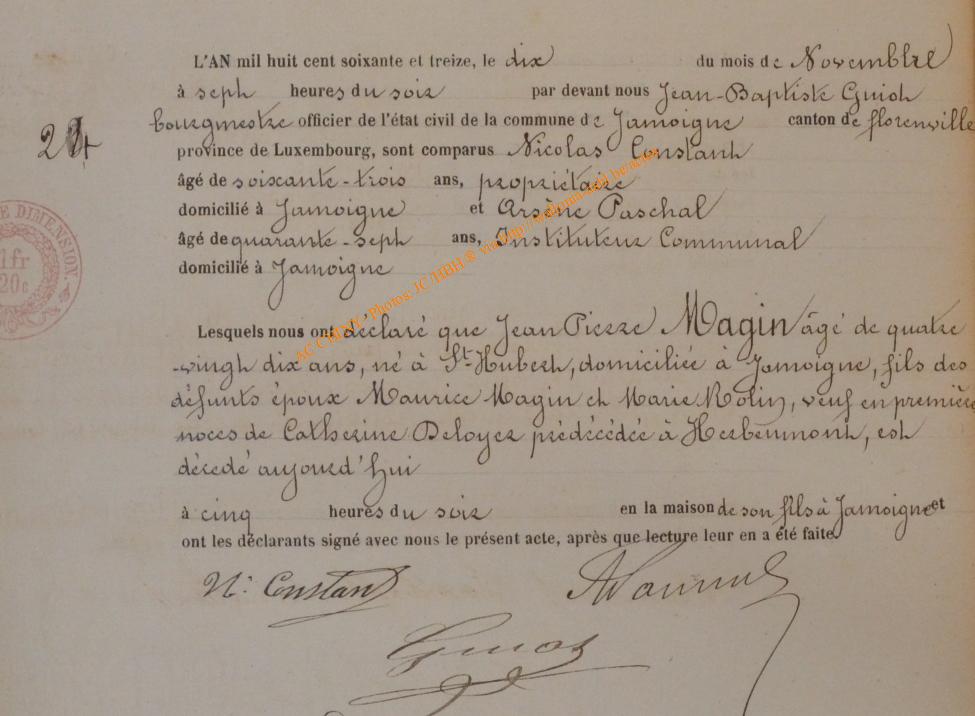 L'AN mil huit cent soixante et treize, le dix du mois de Novembre
à sept heures du soir par devant nous Jean-Baptiste Guiot
bourgmestre officier de l'état civil de la commune de Jamoigne canton de florenville
24
province de Luxembourg, sont comparus Nicolas Constant
âgé de soixante-trois ans, propriétaire
domicilié à Jamoigne et Arsène Paschal
âgé de quarante-sept ans, Instituteur Communal
domicilié à Jamoigne
E DIMENSION.
1fr
20c
Lesquels nous ont déclaré que Jean Pierre Magin âgé de quatre
-vingt dix ans, né à St Hubert, domiciliée à Jamoigne, fils des
défunts époux Maurice Magin et Marie Rolin, veuf en première
noces de Catherine Deloyer prédécédée à Herbeumont, est
décedé aujourd'hui
à cinq heures du soir en la maison de son fils à Jamoigne et
ont les déclarants signé avec nous le présent acte, après que lecture leur en a été faite.
N. Constant
AC CHINY Photos: JC/HBH ® via http://